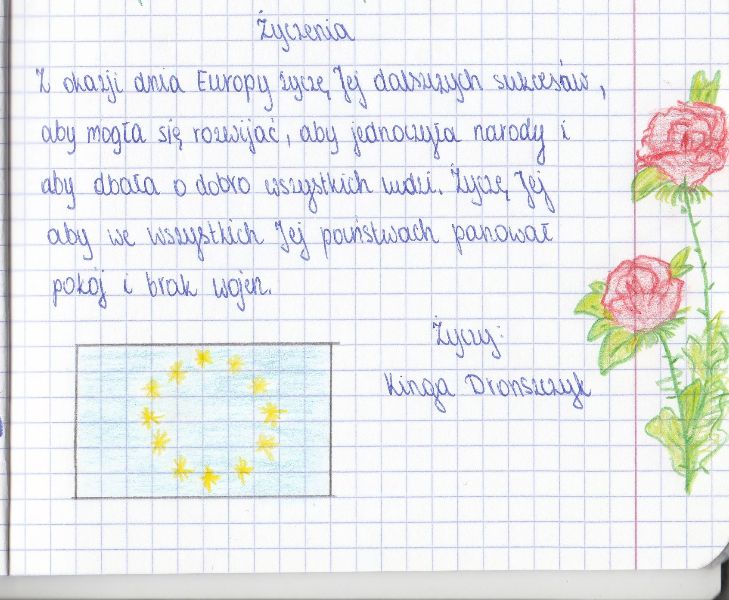 Życzenia
Z okazji dnia Europy życzę Jej dalszych sukcesów,
aby mogła się rozwijać, aby jednoczyła narody i
aby dbała o dobro wszystkich ludzi. Życzę Jej
aby we wszystkich Jej państwach panował
pokój i brak wojen.
Życzy:
Kinga Dronszczyk